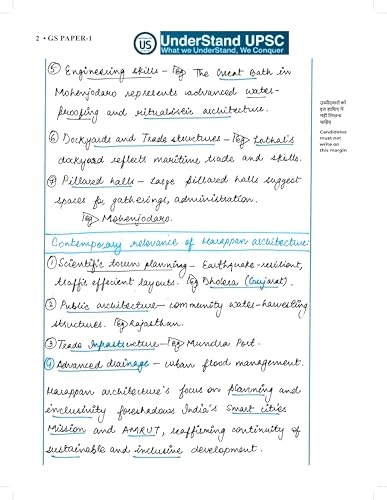 2 • GS PAPER-1
US
UnderStand UPSC
What we UnderStand, We Conquer
उम्मीदवारों को
इस हाशिए में
नहीं लिखना
चाहिए
Candidates
must not
write on
this margin
⑤ Engineering skills – Eg> The Great Bath in
Mohenjodaro represents advanced water-
proofing and ritualistic architecture.
⑥ Dockyards and Trade structures – Eg> Lothal's
dockyard reflects maritime trade and skills.
⑦ Pillared halls – Large pillared halls suggest
spaces for gatherings, administration.
Eg> Mohenjodaro.
Contemporary relevance of Harappan architecture:
① Scientific town planning – Earthquake-resilient,
traffic efficient layouts. Eg> Dholera (Gujarat).
② Public architecture – community water-harvesting
structures. Eg> Rajasthan.
③ Trade Infrastructure – Eg> Mundra Port.
④ Advanced drainage – urban flood management.
Harappan architecture's focus on planning and
inclusivity foreshadows India's Smart cities
Mission and AMRUT, reaffirming continuity of
sustainable and inclusive development.